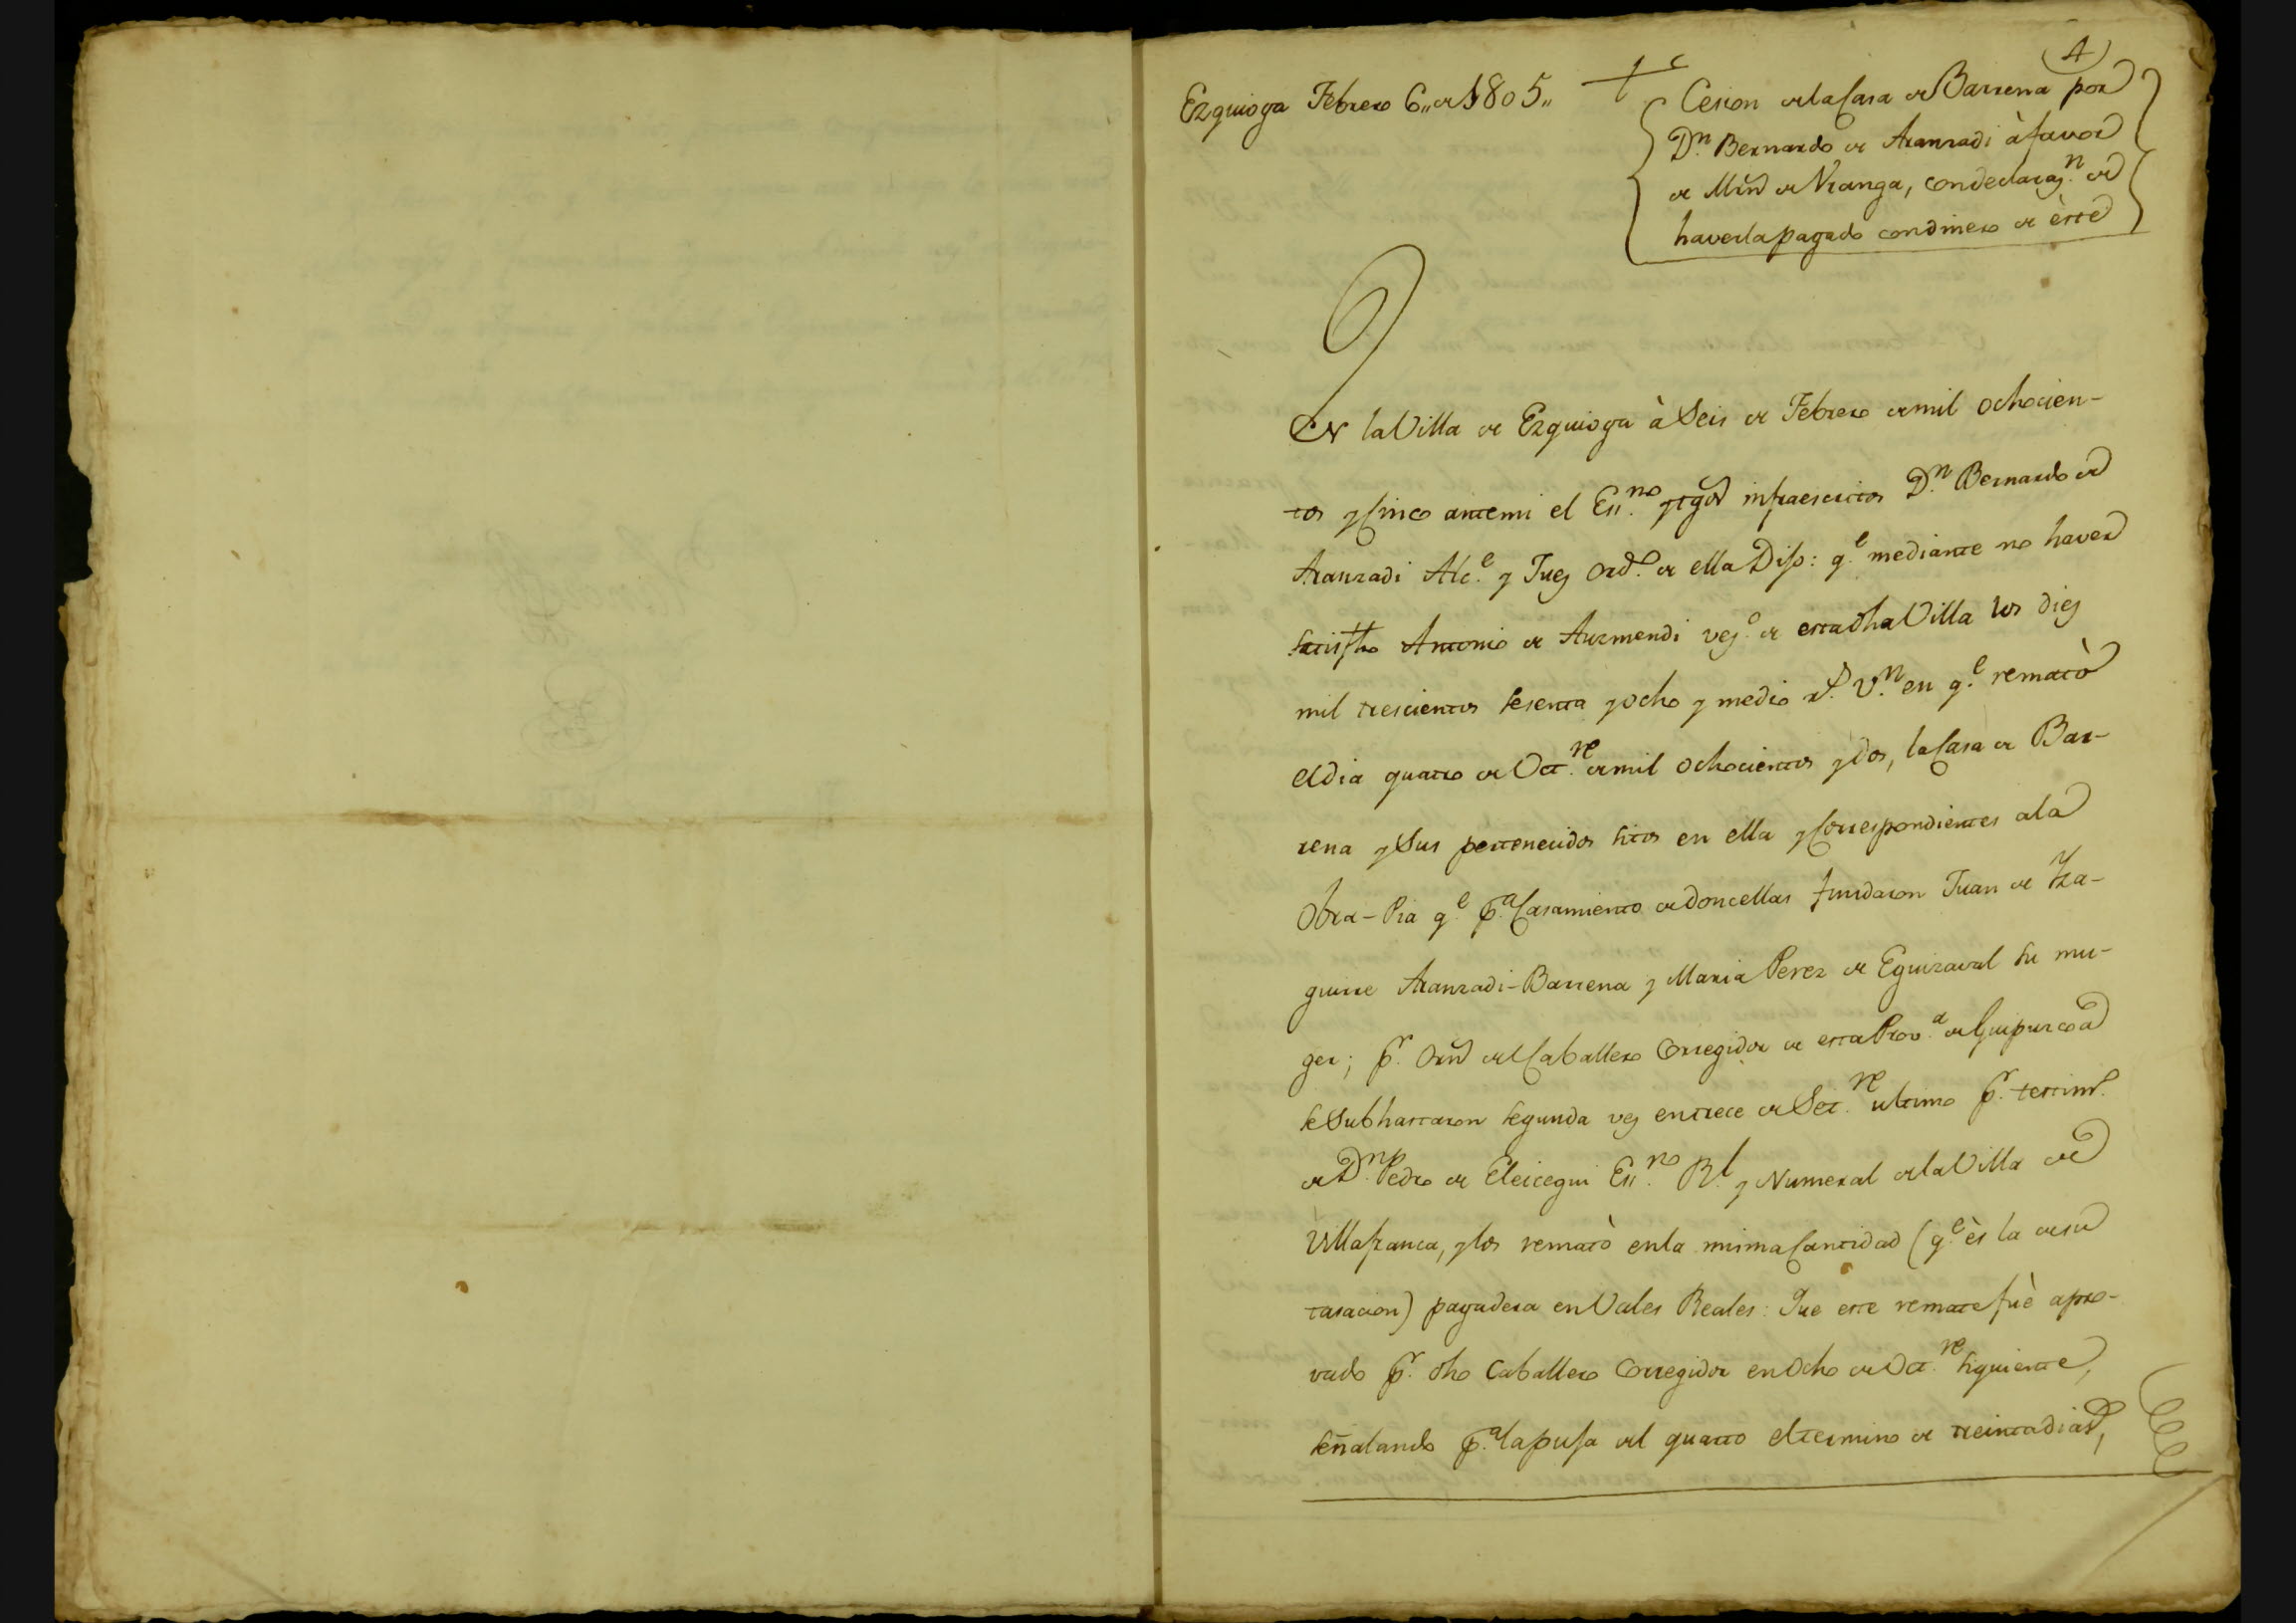 4
Ezquioga Febrero 6,, de 1805,,
Cesion de la Casa de Barrena por
Dn. Bernardo de Aranzadi à favor
de Mrñ de Vranga, con declarazn. de
haverla pagado con dinero de èste
En la Villa de Ezquioga à Seis de Febrero de mil ochocien-
tos y Cinco ante mi el Essno. y tgos infraescritos Dn. Bernardo de
Aranzadi Alce. y Juez Ordo. de ella Dijo: qe. mediante no haver
satisfho Antonio de Auzmendi vezo. de esta dha Villa los diez
mil trescientos sesenta y ocho y medio rs. Vn. en qe. rematò
el dia quatro de Octre. de mil ochocientos y dos, la Casa de Bar-
rena y Sus pertenecidos sitos en ella y Correspondientes a la
Obra-Pia qe. pa. Casamiento de doncellas fundaron Juan de Yza-
guirre Aranzadi-Barrena y Maria Perez de Eguizaval su mu-
ger; pr. Orñ del Caballero Corregidor de esta Prova. de Guipuzcoa
se Subhastaron segunda vez en trece de Setre. ultimo pr. testimo.
de Dn. Pedro de Eleicegui Essno. Rl. y Numeral de la Villa de
Villafranca, y los rematò en la misma Cantidad (qe. ès la de su
tasacion) pagadera en Vales Reales: Que este remate fuè apro-
vado pr. dho Caballero Corregidor en Ocho de Octre. siguiente,
señalando pa. la puja del quarto el termino de treinta dias,